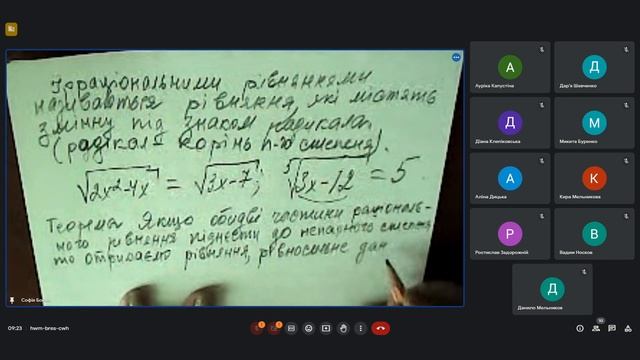 Ірраціональними рівняннями
називаються рівняння, які містять
змінну під знаком радикала
(радікал = корінь n-го степеня).
√2x²-4x = √3x-7; ⁵√3x-12 = 5
Теорема Якщо обидві частини раціональ-
ного рівняння піднести до непарного степеня
то отримаємо рівняння, рівносильне дан
Софія
09:23 hwm-bres-cwh
А
Ауріка Капустіна
Д
Дар'я Шевченко
Д
Діана Клепіковська
М
Микита Буренко
А
Аліна Дицька
К
Кира Мельникова
Р
Ростислав Задорожній
В
Вадим Носков
Д
Данило Мельников
10